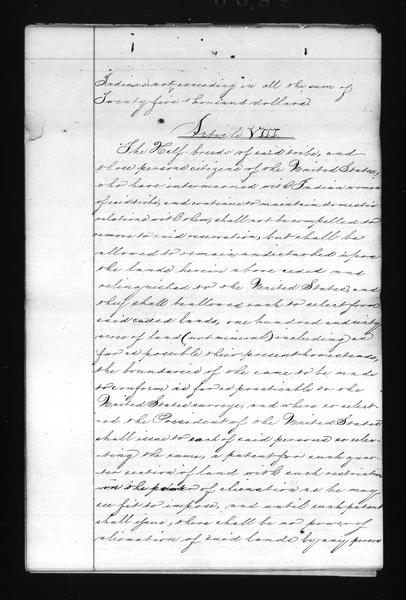 Indians, not exceeding in all the sum of
Twenty five thousand dollars.
Article VIII
The Half-breeds of said tribe, and
those persons citizens of the United States,
who have intermarried with Indian women
of said tribe, and continue to maintain domestic
relations with them, shall not be compelled to
remove to said reservation, but shall be
allowed to remain undisturbed upon
the lands herein above ceded and
relinquished to the United States, and
they shall be allowed each to select from
said ceded lands, one hundred and sixty
acres of land (not mineral) including as
far as possible their present homesteads,
the boundaries of the same to be made
to conform as far as practicable to the
United States surveys, and when so select-
ed the President of the United States
shall issue to each of said persons so selec-
ting the same, a patent for such quar-
ter section of land with such restriction
on the power of alienation as he may
see fit to impose, and until such patent
shall issue, there shall be no power of
alienation of said lands by any person